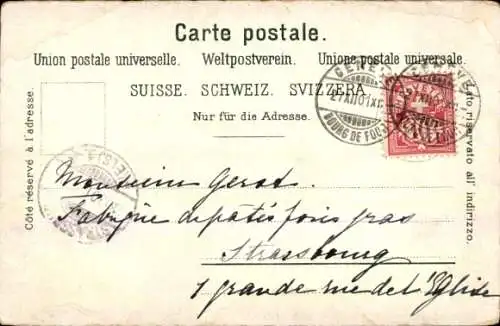 Carte postale.
Union postale universelle. Weltpostverein. Unione postale universale.
SUISSE. SCHWEIZ. SVIZZERA.
Nur für die Adresse.
Côté réservé à l'adresse.
Lato riservato all' indirizzo.
GENÈVE
27.XII.01
BOURG DE FOUR
Monsieur Gerot.
Fabrique de patés foies gras
Strassbourg
1 grande rue de l'Eglise